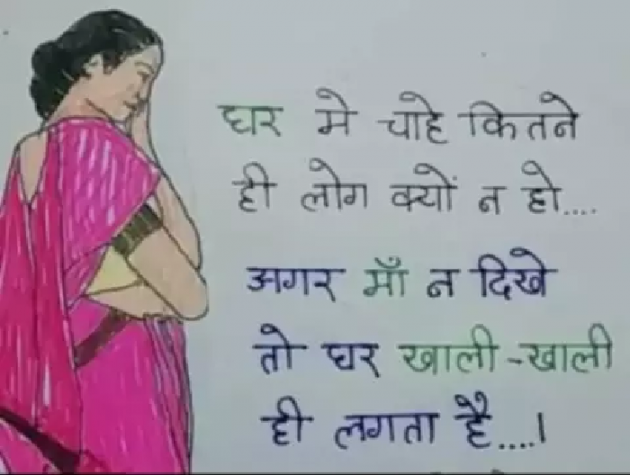 घर मे चाहे कितने
ही लोग क्यों न हो....
अगर माँ न दिखे
तो घर खाली-खाली
ही लगता है....।